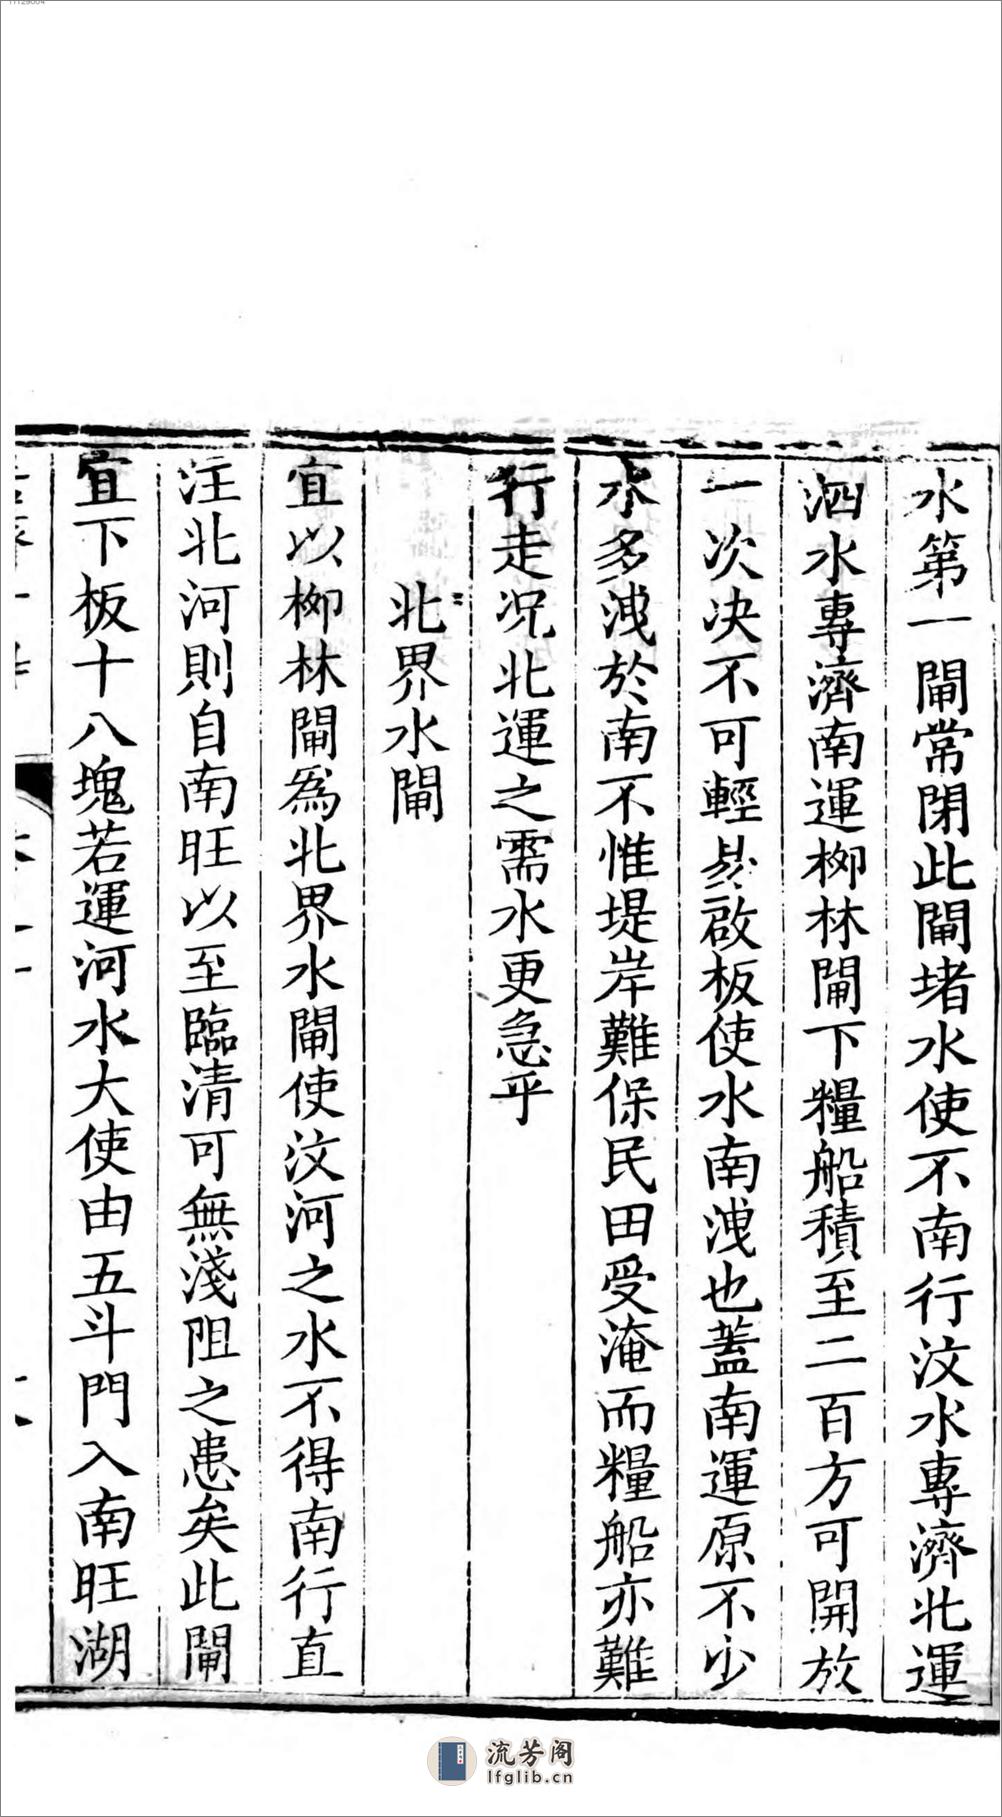 水第一閘常閉此閘堵水使不南行汶水專濟北運
泗水專濟南運柳林閘下糧船積至二百方可開放
一次决不可輕昜啟板使水南洩也蓋南運原不少
水多洩於南不惟堤岸難保民田受淹而糧船亦難
行走况北運之需水更急乎
北界水閘
宜以柳林閘爲北界水閘使汶河之水不得南行直
注北河則自南旺以至臨清可無淺阻之患矣此閘
宜下板十八塊若運河水大使由五斗門入南旺湖
流芳阁
lfglib.cn